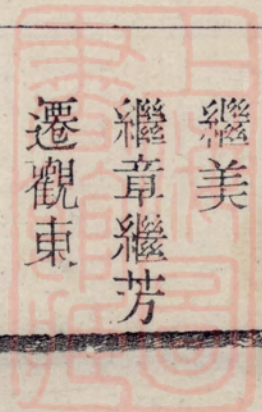 繼美
繼章繼芳
遷觀東